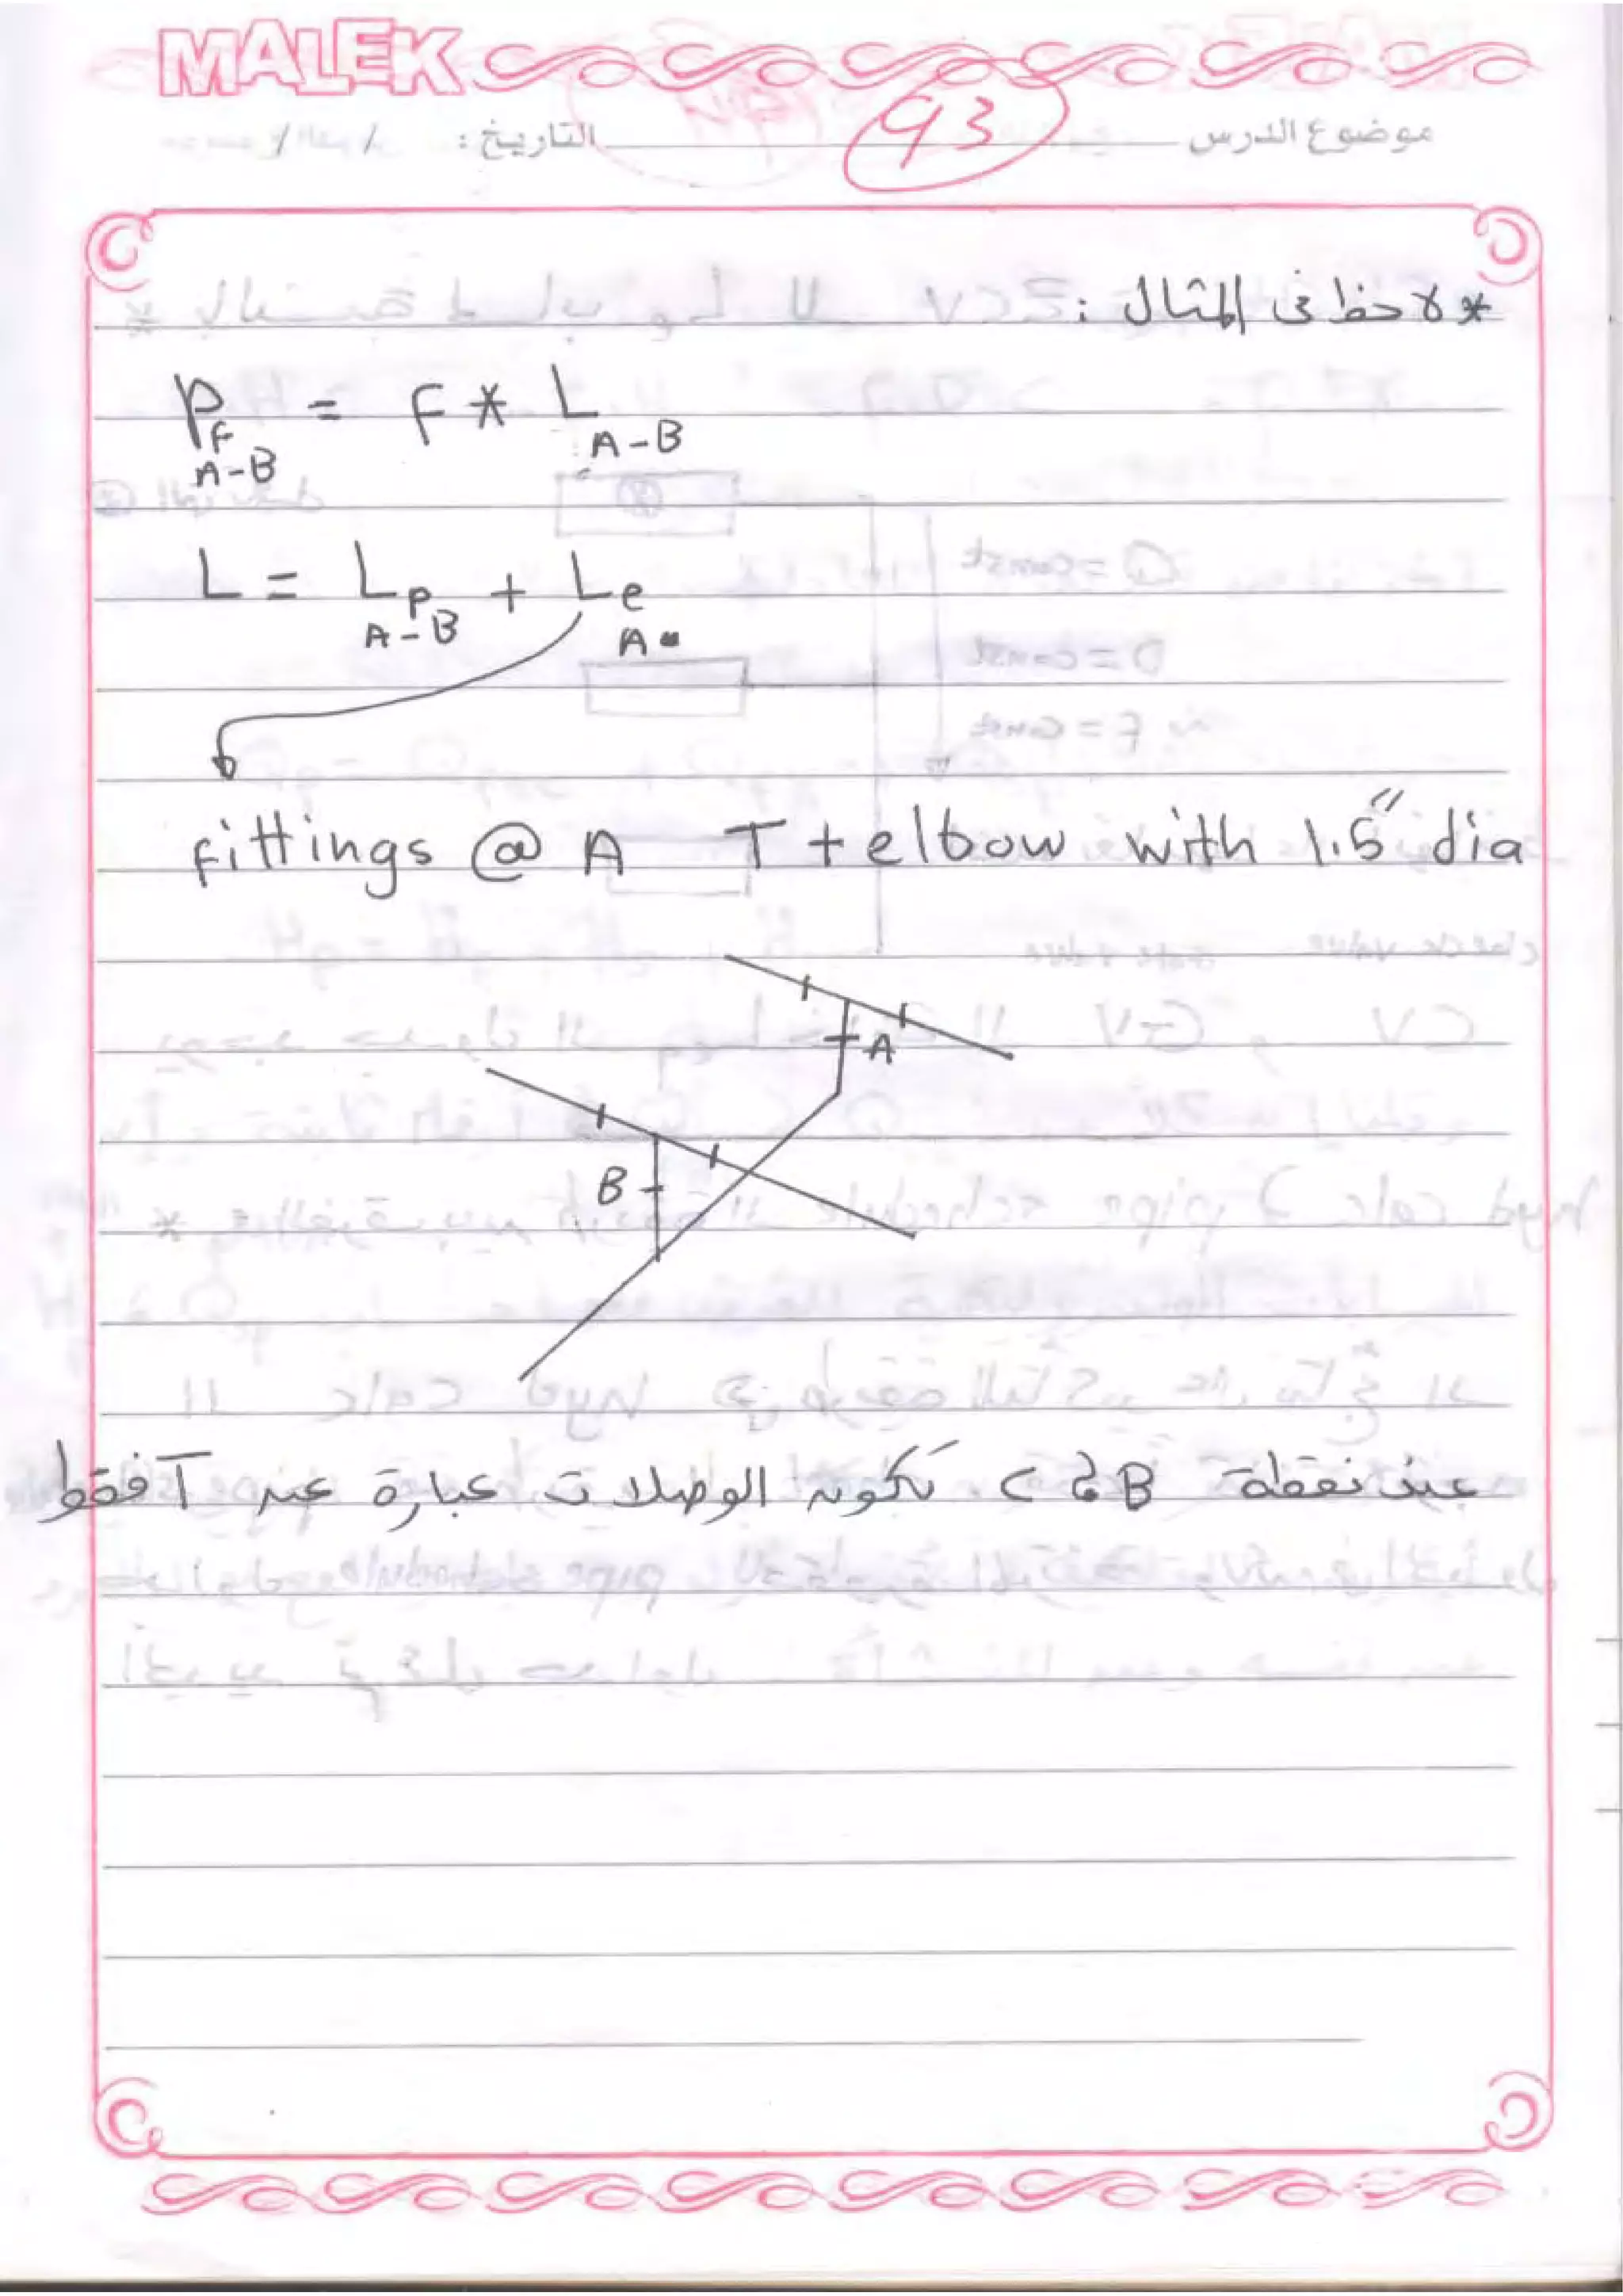 MALEK
موضوع الدرس 93 التاريخ: / /
* لاحظ فى المثال :
P = F * L
F A-B
A-B
L = Lp + Le
A-B A
fittings @ A T + elbow with 1.5" dia
A
B
عند نقطة B & C تكون الوصلات عبارة عن T فقط